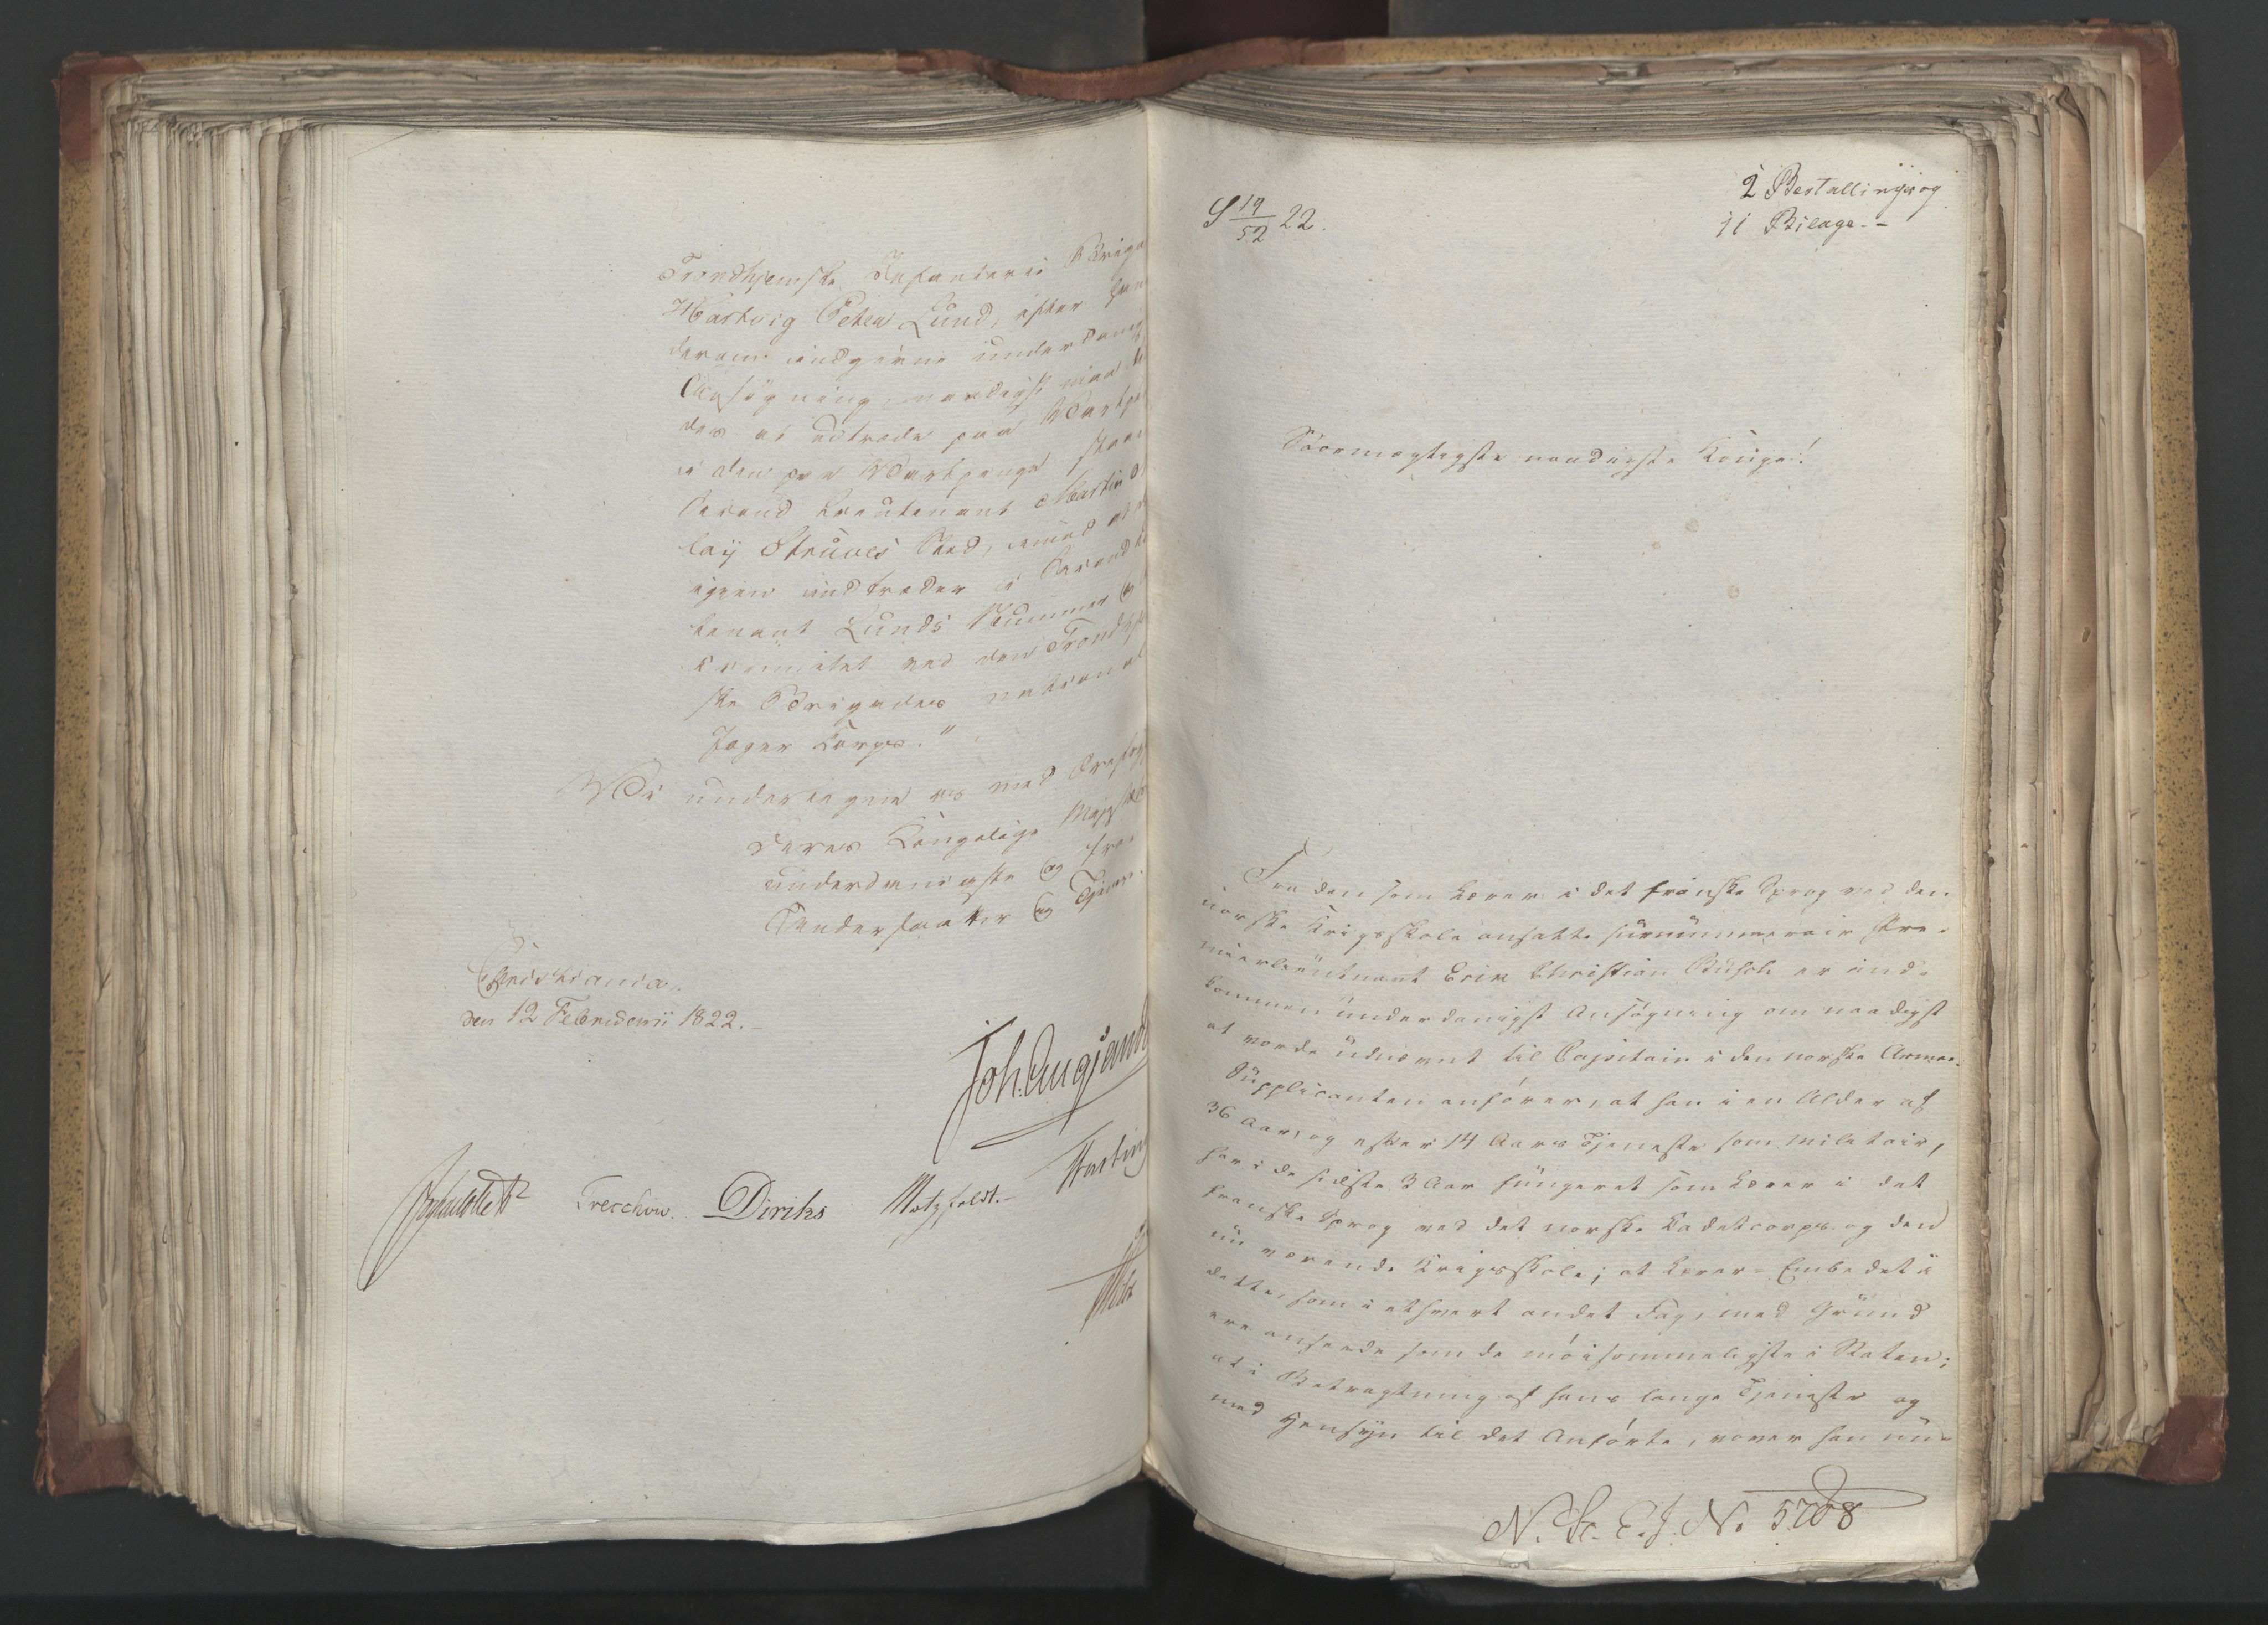 Trondhjemske Infanterie Briga
Hartvig Peter Lund, efter han
derom indgivne underdanig
Ansøgning, naadigst maa
des at udtræde paa Vartpe
i den paa Vartpenge staae
Second Lieutenant Martin
lay Struves Sted, imod at
igjen indtræder i Second
tenant Lunds Nummer og
Ancienitet ved den Trondhje
ske Brigades nationale
Jæger Corps."
Vi undertegne os med Ærefrygt
Deres Kongelige Majestæts
underdanigste og troe
Undersaatter og Tjenere.
Christiania,
den 12 Februarii 1822.
Joh. Aug. Sand
Treschow. Diriks Motzfeldt. Fasting
Holst
S 19/52 22.
2 Bestallinger og
11 Bilage.
Stormægtigste naadigste Konge!
Fra den som Lærer i det franske Sprog ved den
norske Krigsskole ansatte surnummerair Pre-
mierlieutnant Erik Christian Busch er ind-
kommen underdanigst Ansøgning om naadigst
at vorde udnævnt til Capitain i den norske Armee.
Supplicanten anfører, at han i en Alder af
36 Aar, og efter 14 Aars Tjeneste som Militair,
har i de sidste 3 Aar fungeret som Lærer i det
franske Sprog ved det norske Kadetcorps og den
nu værende Krigsskole; at Lærer-Embedet i
dette, som i ethvert andet Fag, med Grund
ere ansende som de møisommeligste i Staten;
at i Betragtning af hans lange Tjeneste og
med Hensyn til det Anførte, vover han un-
N. St. E. J. No 5708